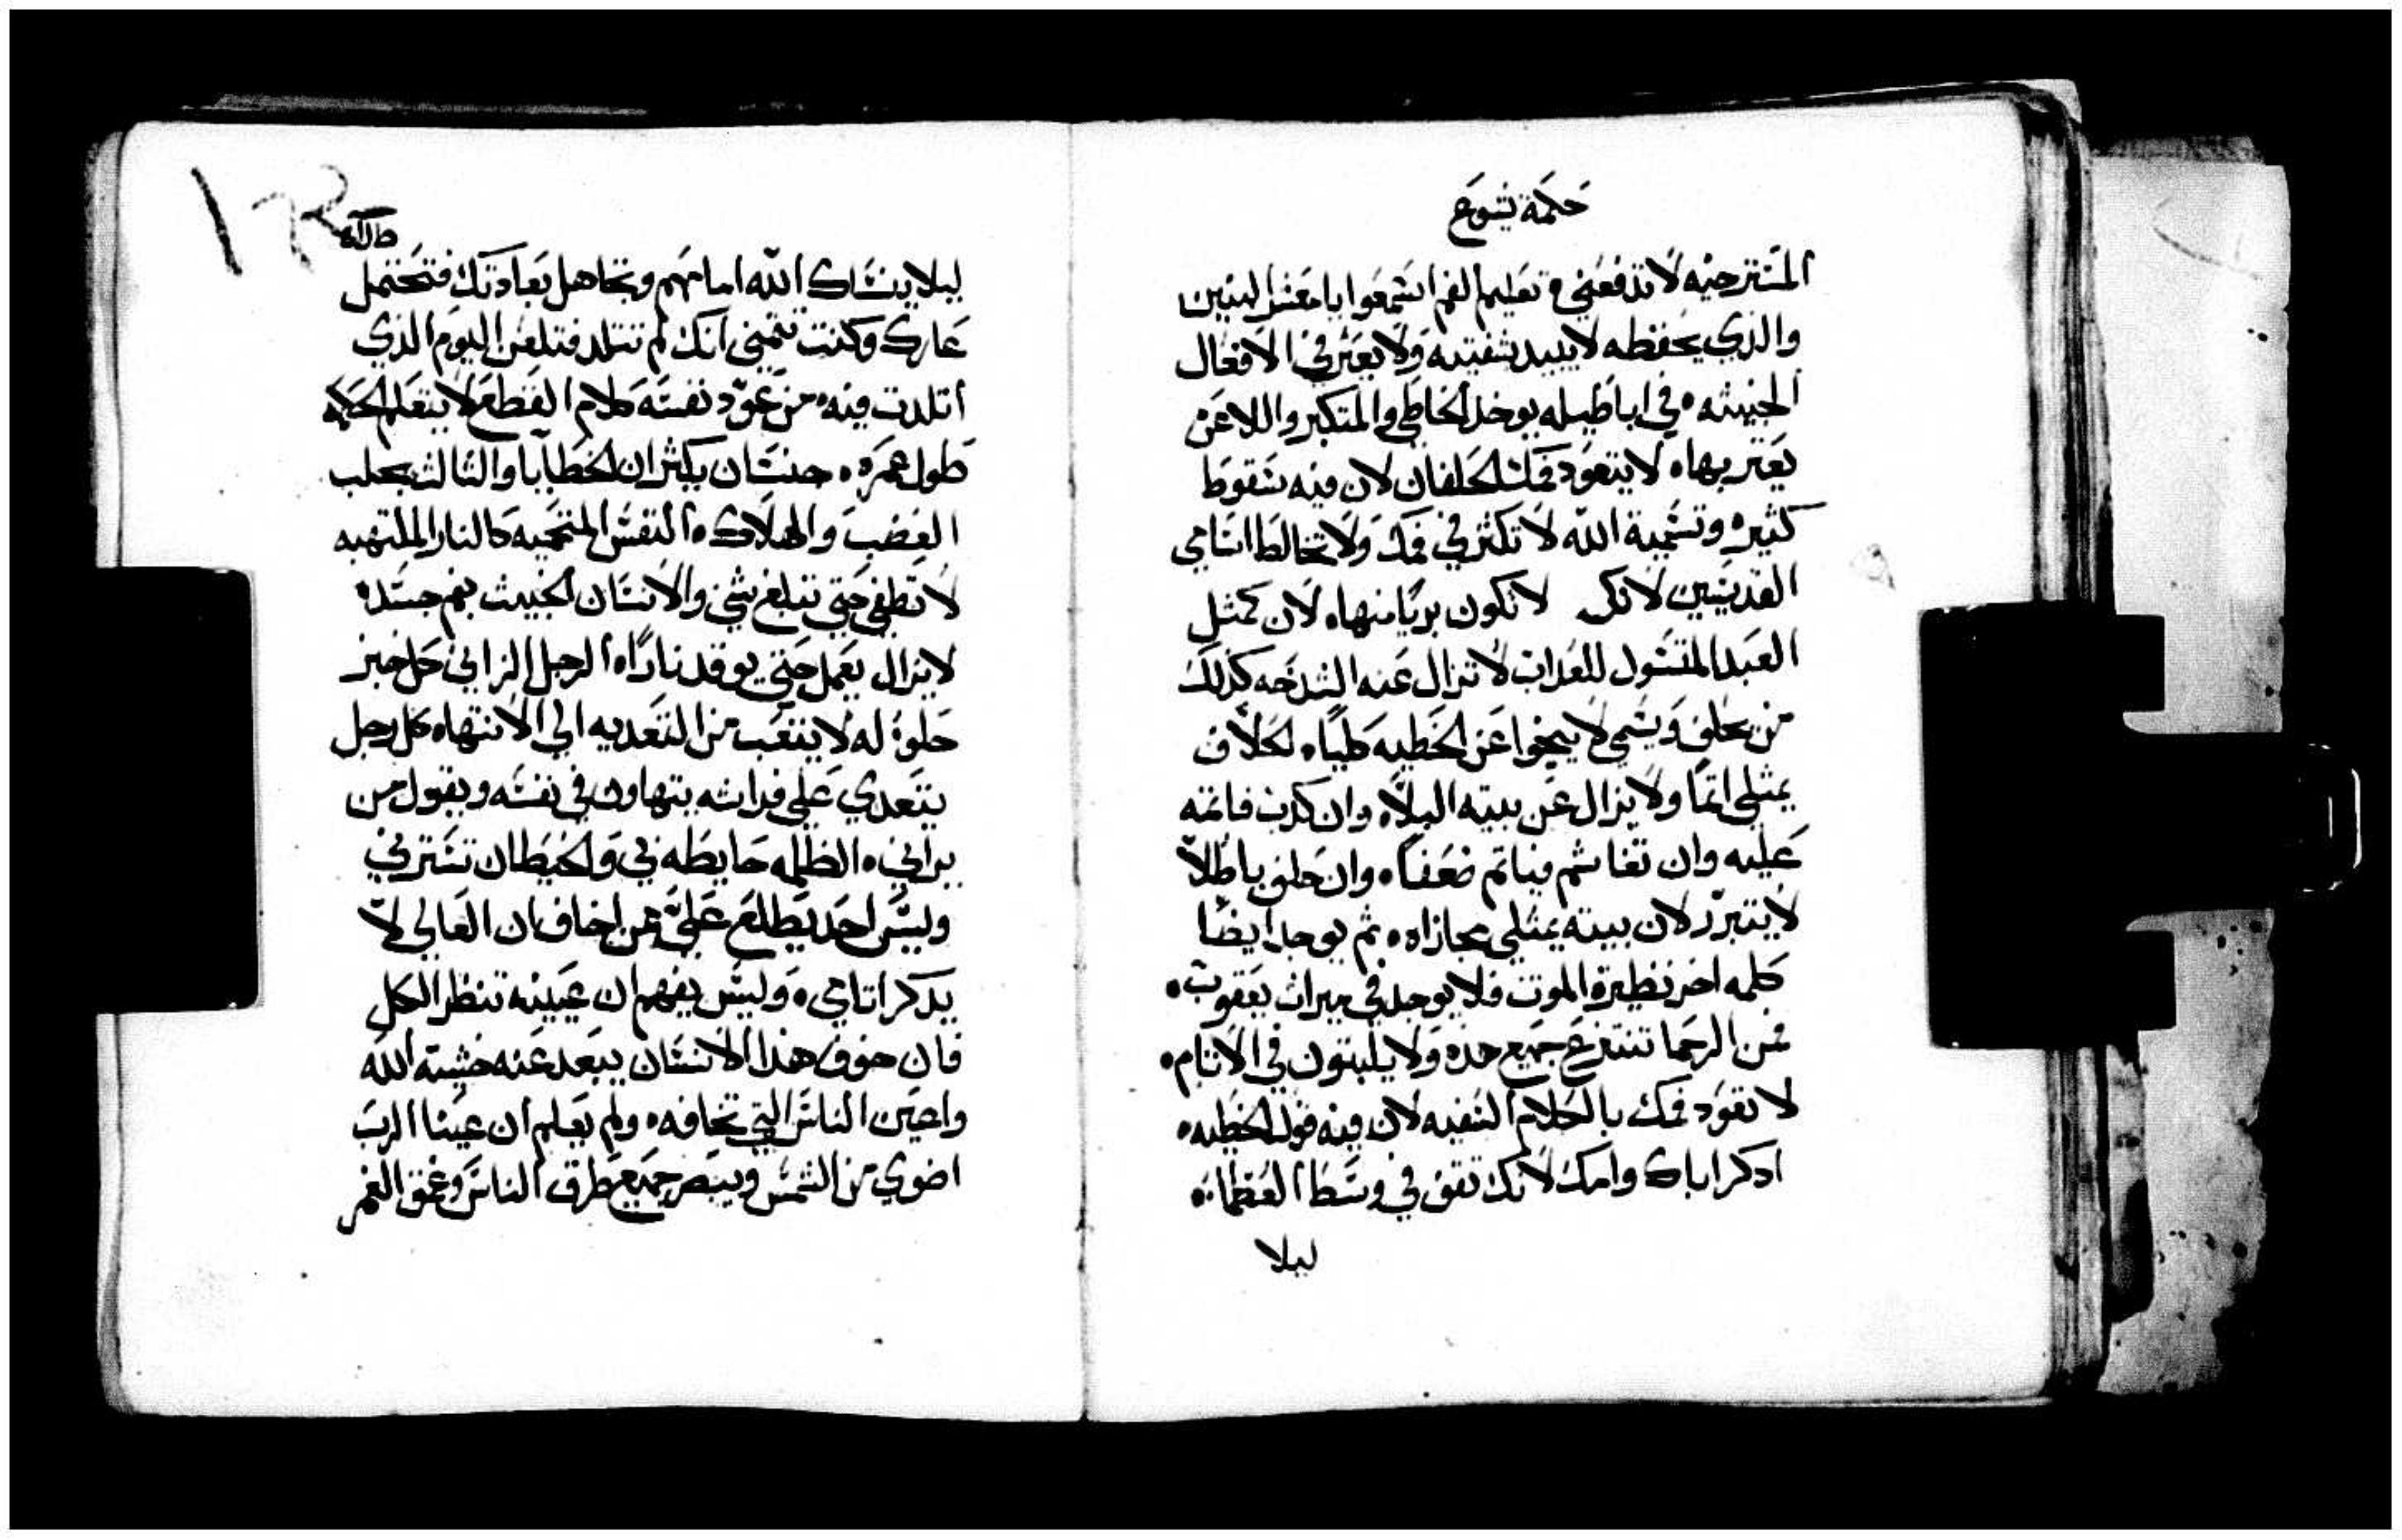 حكمة يشوع
المسترخيه لا تدفعني ٥ تعليم الفم اسمعوا يا معشر البنين
والذي يحفظه لا يبيد بشفتيه ولا يعثر في الافعال
الخبيثه ٥ في اباطيله يوخد الخاطي والمتكبر واللاعن
يعتر بها ٥ لا يتعود فمك الحلفان لان فيه سقوط
كثيره وتسمية الله لا تكثر في فمك ولا تخالط اسامي
القديسين لانك لا تكون بريًا منها ٥ لان كمثل
العبد المتسول للعداب لا تزال عنه الشدخه كذلك
من يحلف ويسمي لا ينجوا عن الخطيه كليًا ٥ الحلاف
يمتلي اتمًا ولا يزال عن بيته البلاء وان كدب فاتمه
عليه وان تغاشم فياتم ضعفًا ٥ وان حلف باطلاً
لا يتبرر لان بيته يمتلي مجازاه ٥ ثم يوجد ايضًا
كلمه اخر نظيرة الموت فلا يوجد في ميراث يعقوب ٥
فمن الرحما تنتزع جميع هذه ولا يلبتون في الاتام ٥
لا تعود فمك بالكلام السفيه لان فيه قول الخطيه ٥
ادكر اباك وامك لانك تقف في وسط العظما ٥
ليلا
١٢
ليلا ينساك الله امامهم وتجاهل بعادتك فتحتمل
عارك وكنت تتمني انك لم تتلد فتلعن اليوم الذي
اتلدت فيه ٥ من عود نفسه كلام الفظع لا يتعلم الحكمه
طول عمره ٥ جنسان يكثران الخطايا والتالت يجلب
الغضب والهلاك ٥ النفس المتحميه كالنار الملتهبه
لا تطفي حتي تبلع شي والانسان الخبيث بفم جسده
لا يزال يعمل حتي يوقد نارًا ٥ الرجل الزاني كل خبز
حلو له لا يتعب من التعديه الي الانتها ٥ كل رجل
يتعدي علي فراشه يتهاون في نفسه ويقول من
يراني ٥ الظلمه حايطه في والحيطان تسترني
وليس احد يطلع علي ممن اخاف ان العالي لا
يدكر اتامي ٥ وليس يفهم ان عينيه تنظر الكل
فان خوف هذا الانسان يبعد عنه خشية الله
واعين الناس التي تخافه ٥ ولم يعلم ان عينا الرب
اضوي من الشمس ويبصر جميع طرق الناس وعمق الغمر